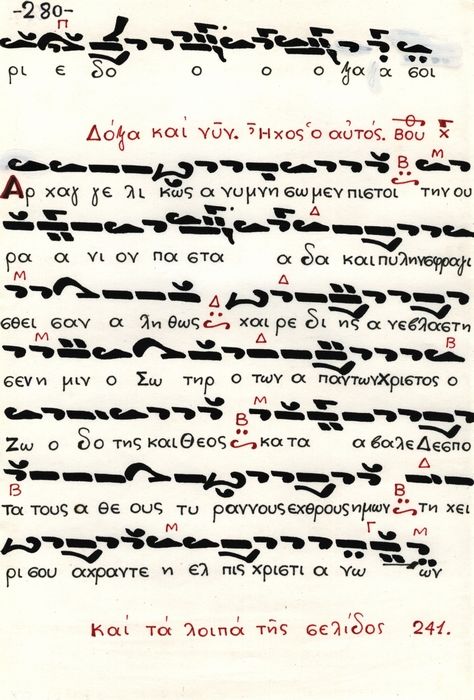 -280-
Π
ρι ε δο ο ο ο ξα α σοι
Δόξα καὶ νῦν. Ἦχος ὁ αὐτός. Βου
Β Μ
Αρ χαγ γε λι κῶς α νυ μνη σω μεν πιστοι την ου
Δ
ρα α νι ον πα στα α δα και πυ λην σφραγι
Μ Δ Δ
σθει σαν α λη θως χαι ρε δι ης α νεβλαστη
Μ Δ Β
σεν η μιν ο Σω τηρ ο των α παντων Χριστος ο
Β Μ
Ζω ο δο της και Θεος κα τα α βαλε Δεσπο
Β Β Δ
τα τους α θε ους τυ ραννους εχθρους ημων τη χει
Μ Γ Μ
ρι σου αχραντε η ελ πις χριστι α νω ων
Καὶ τὰ λοιπά τῆς σελίδος 241.